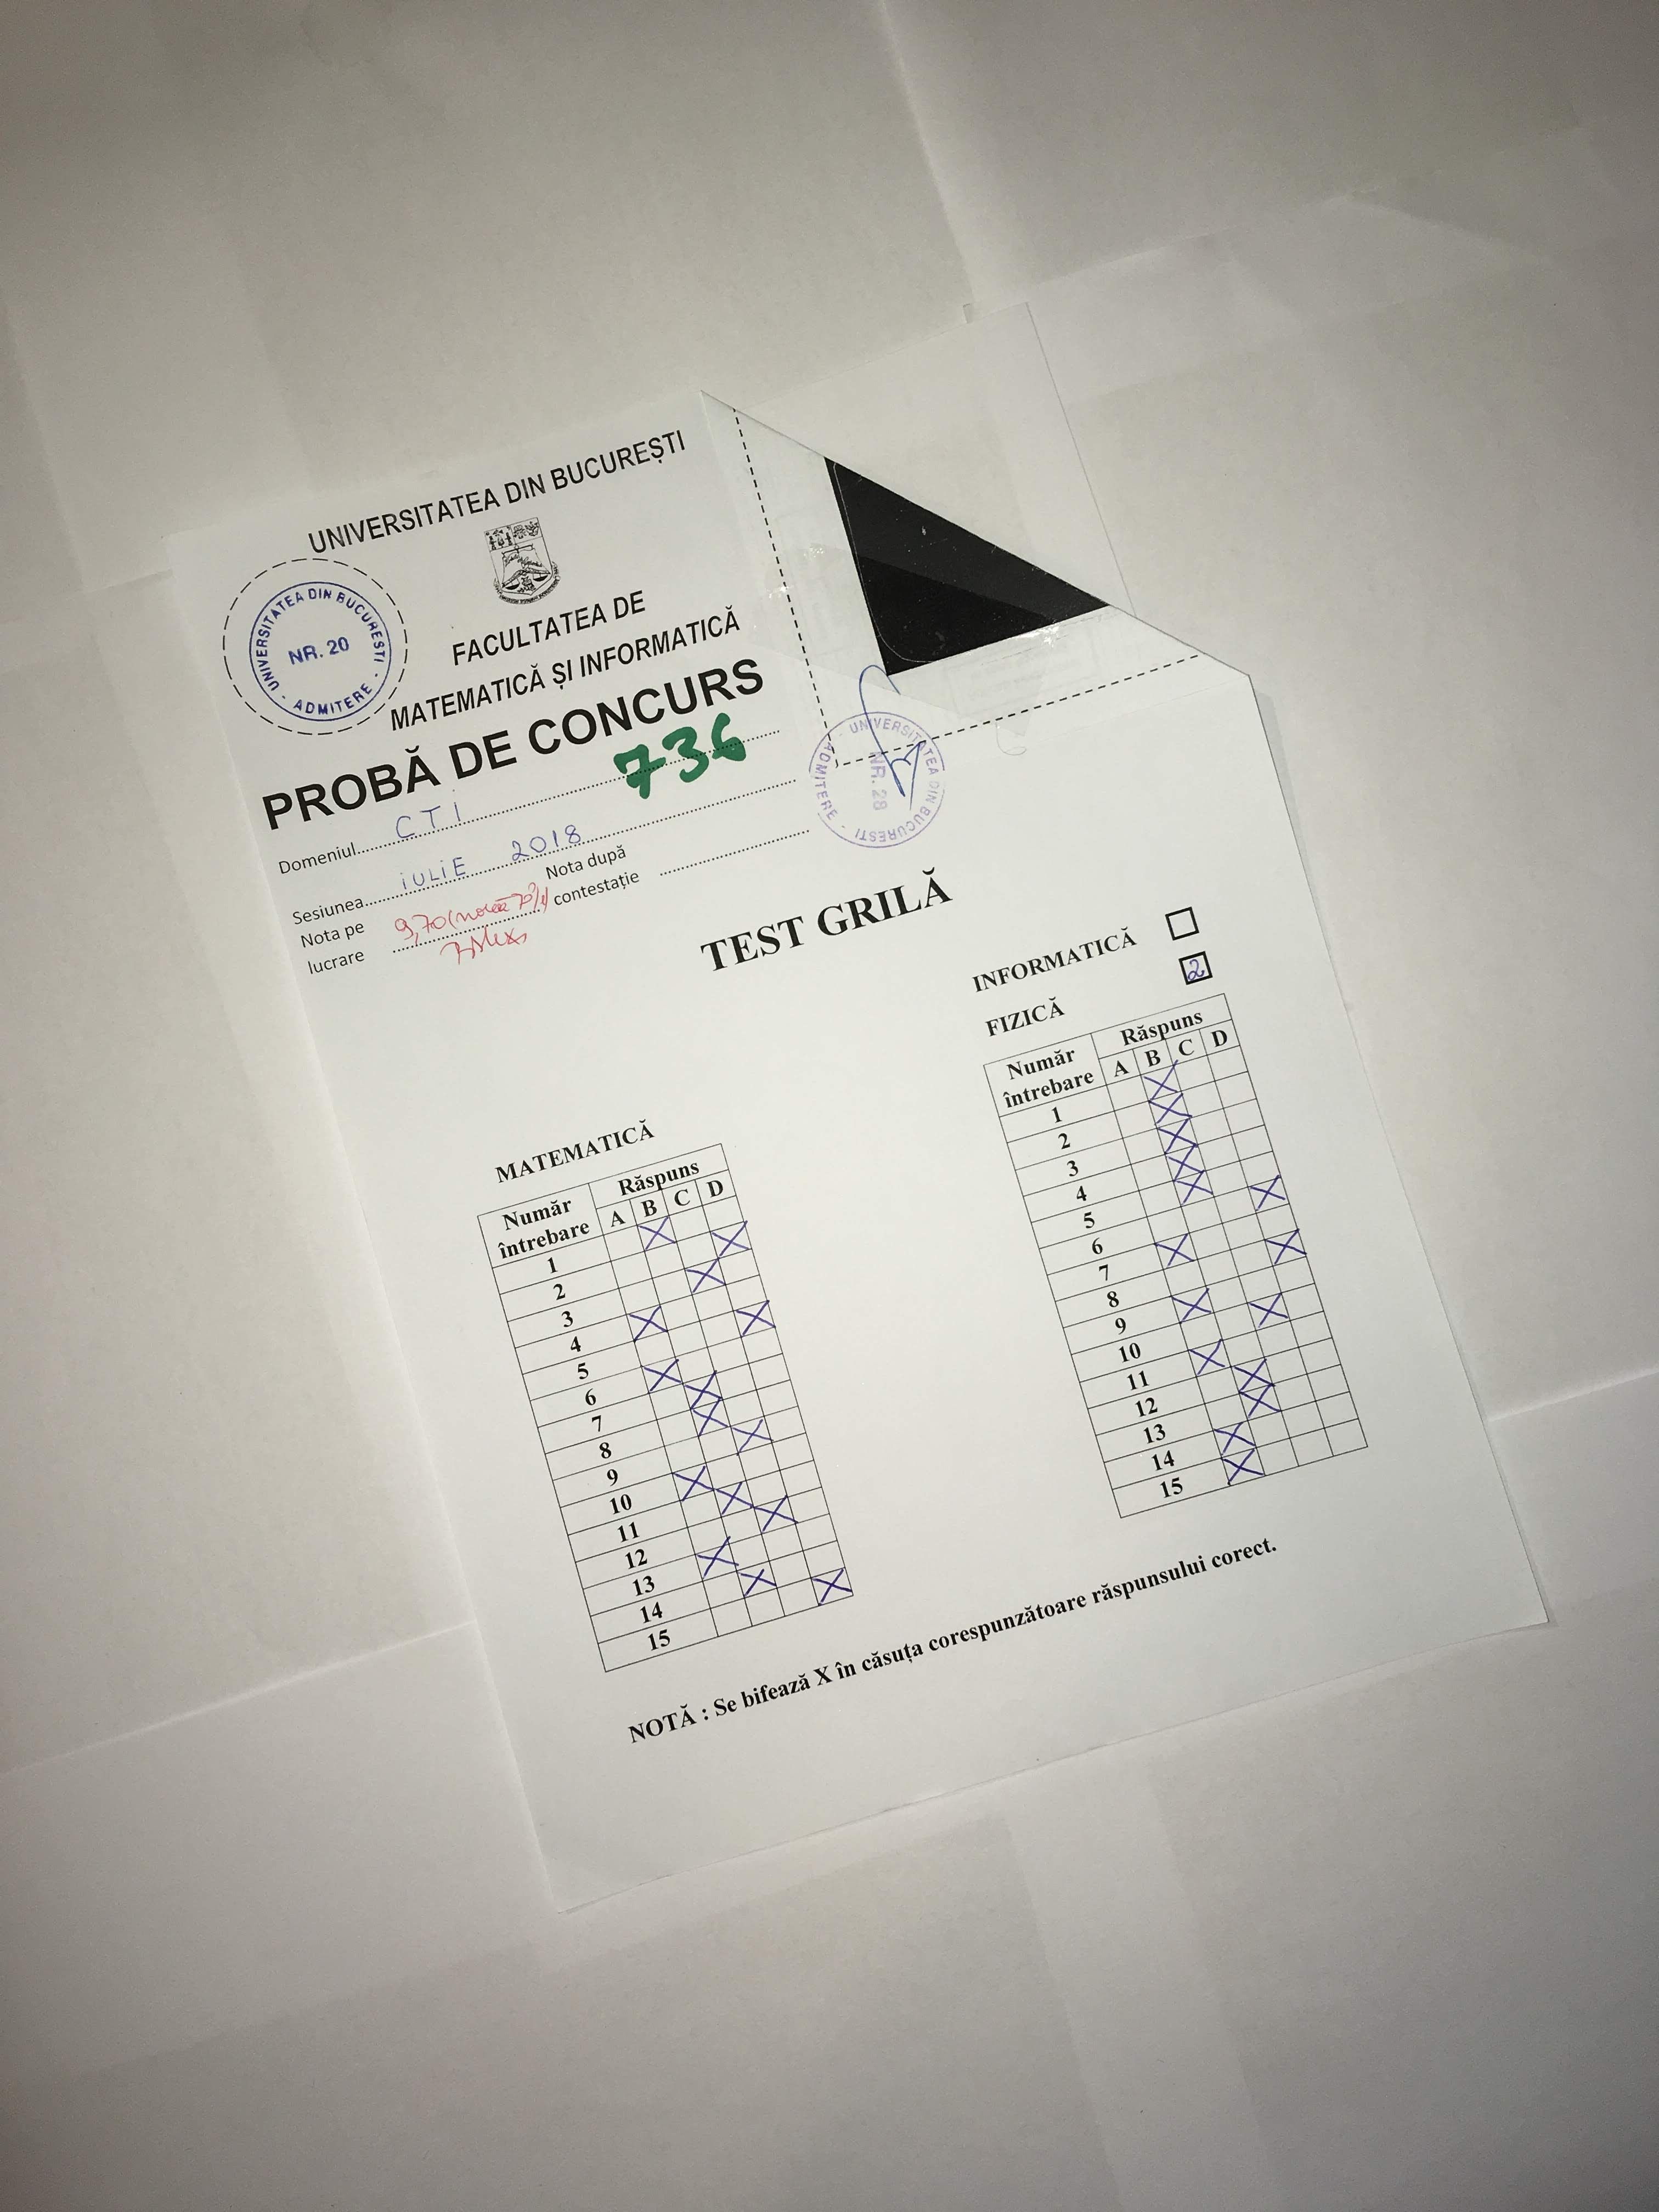 UNIVERSITATEA DIN BUCUREȘTI
UNIVERSITATEA DIN BUCURESTI - ADMITERE -
NR. 20
FACULTATEA DE
MATEMATICĂ ȘI INFORMATICĂ
PROBĂ DE CONCURS
736
Domeniul CTI
Sesiunea iULiE 2018
Nota pe lucrare 9,70
Nota după contestație
UNIVERSITATEA DIN BUCURESTI - ADMITERE -
NR. 28
TEST GRILĂ
INFORMATICĂ
FIZICĂ 2
MATEMATICĂ
Număr întrebare Răspuns
A B C D
1 X
2 X
3 X
4 X
5 X
6 X
7 X
8 X
9 X
10 X
11 X
12 X
13 X
14 X
15 X
Număr întrebare Răspuns
A B C D
1 X
2 X
3 X
4 X
5 X
6 X
7 X
8 X
9 X
10 X
11 X
12 X
13 X
14 X
15 X
NOTĂ : Se bifează X în căsuța corespunzătoare răspunsului corect.